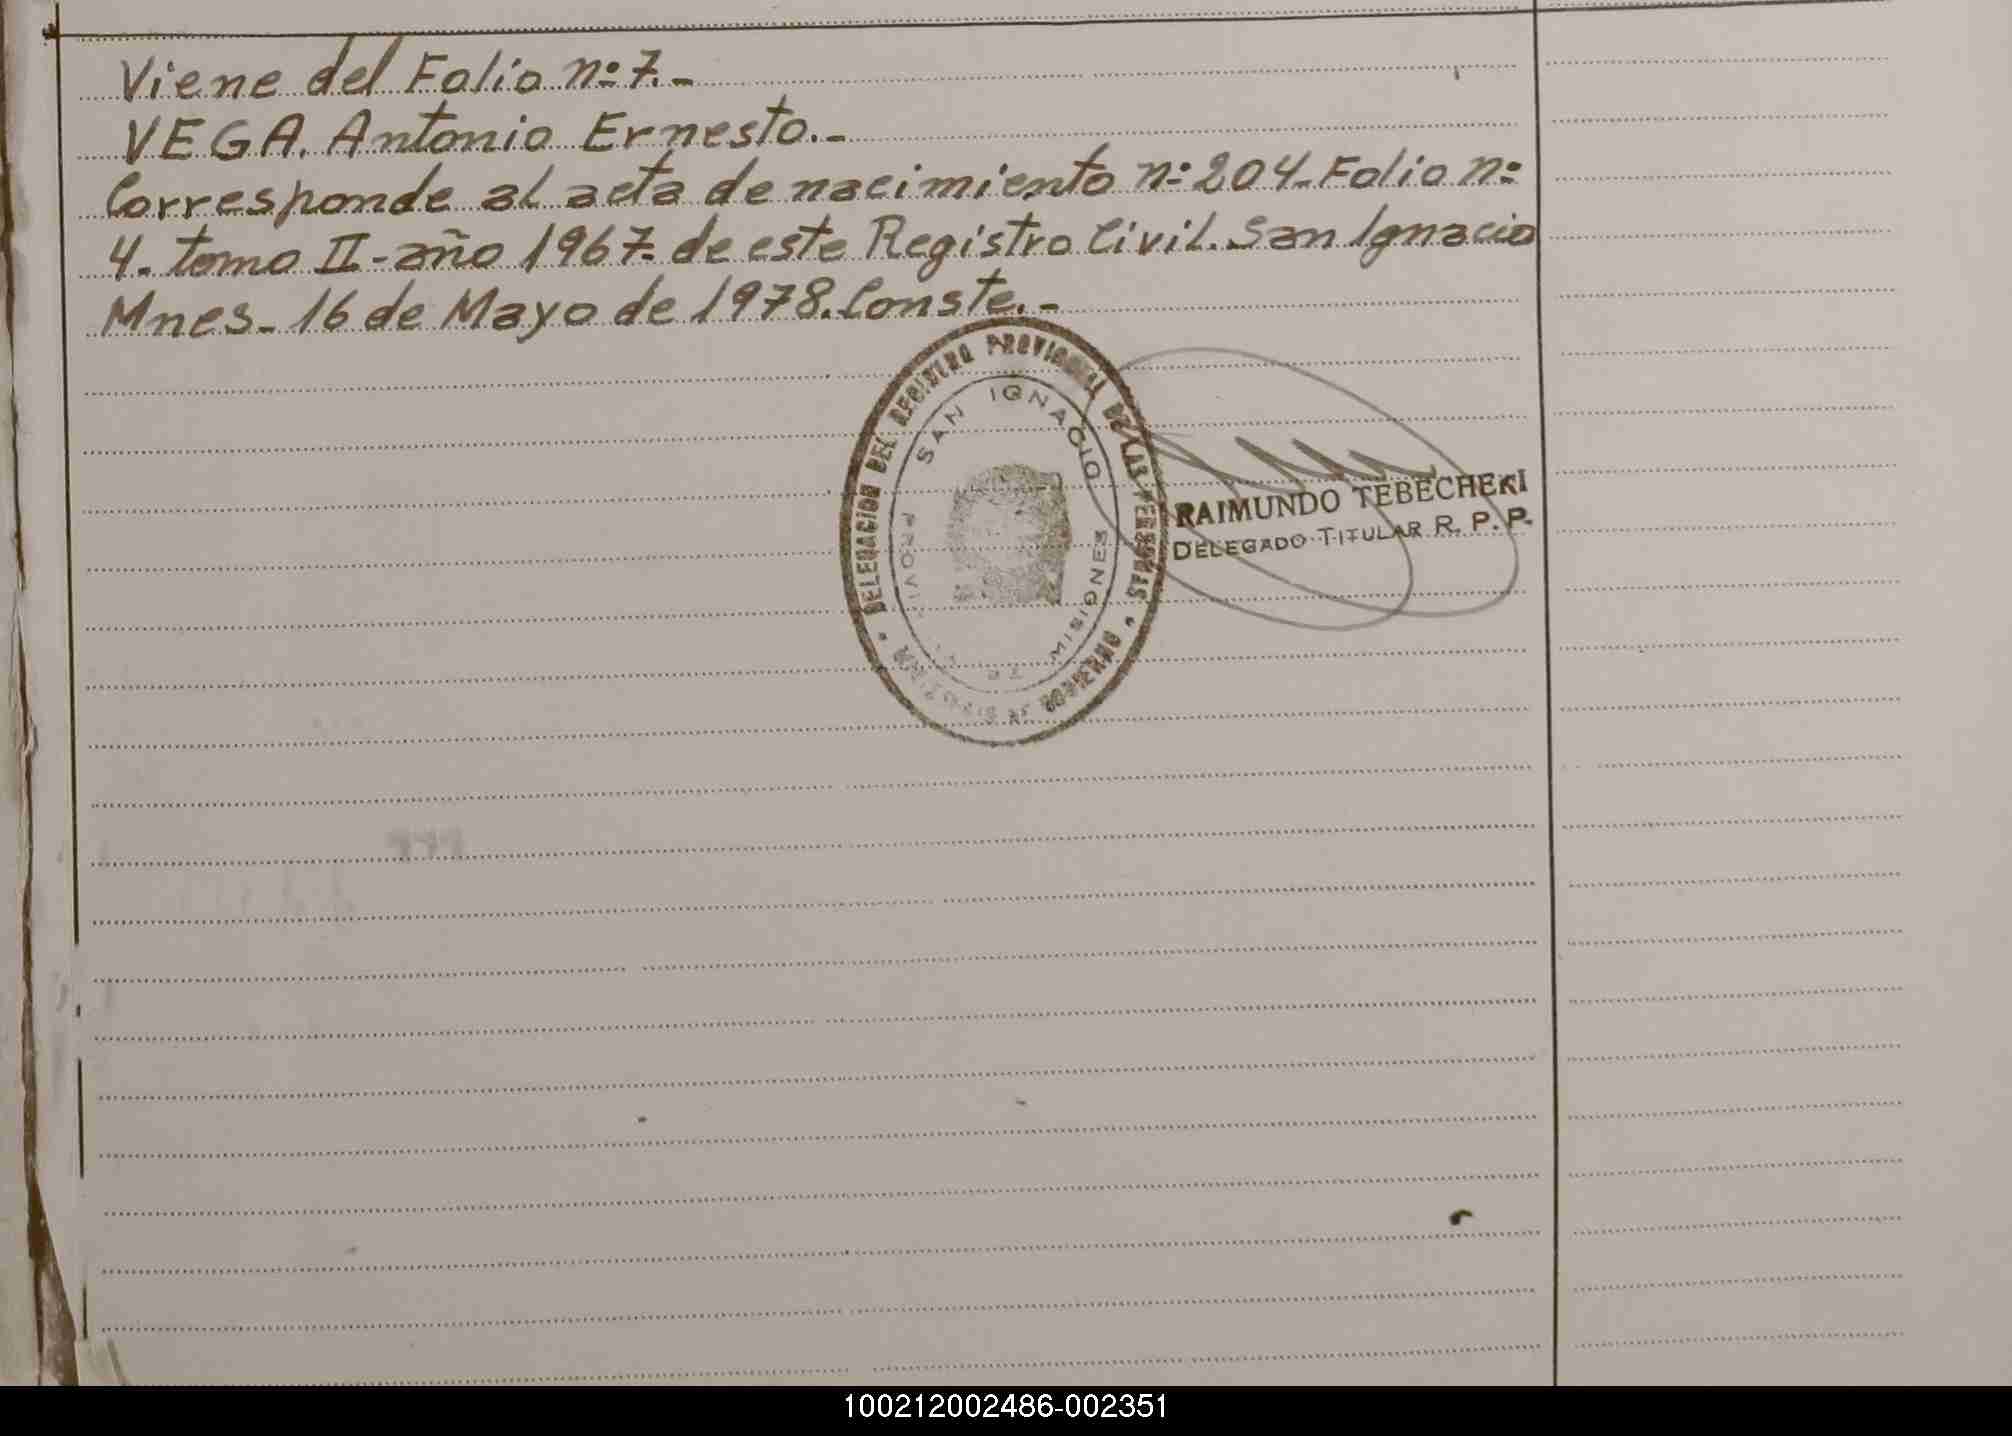 Viene del Folio nº 7.-
VEGA. Antonio Ernesto.-
Corresponde al acta de nacimiento nº 204. Folio nº
4. tomo II - año 1967 - de este Registro Civil. San Ignacio
Mnes - 16 de Mayo de 1978. Conste.-
DELEGACION DEL REGISTRO PROVINCIAL DE LAS PERSONAS
SAN IGNACIO
MISIONES
GOBIERNO
RAIMUNDO TEBECHERI
DELEGADO TITULAR R. P. P.
100212002486-002351